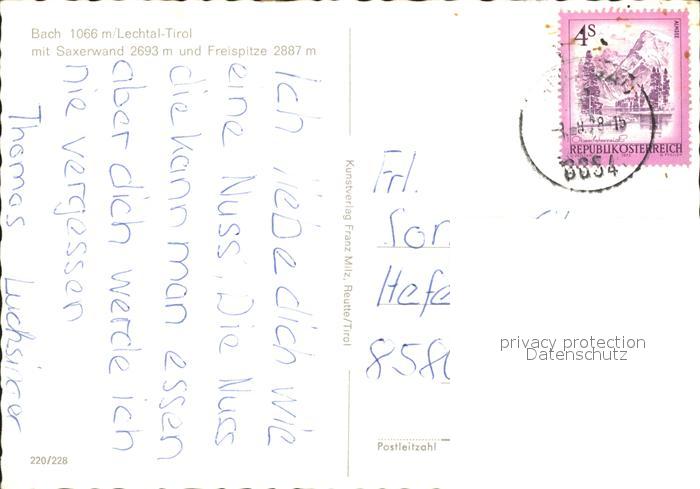 Bach 1066 m/Lechtal-Tirol
mit Saxerwand 2693 m und Freispitze 2887 m
Ich liebe dich wie
eine Nuss, Die Nuss
die kann man essen
aber dich werde ich
nie vergessen
Thomas
220/228
Kunstverlag Franz Milz, Reutte/Tirol
4S
ALMSEE
REPUBLIK ÖSTERREICH
Frl.
Hafe
858
Postleitzahl
privacy protection
Datenschutz